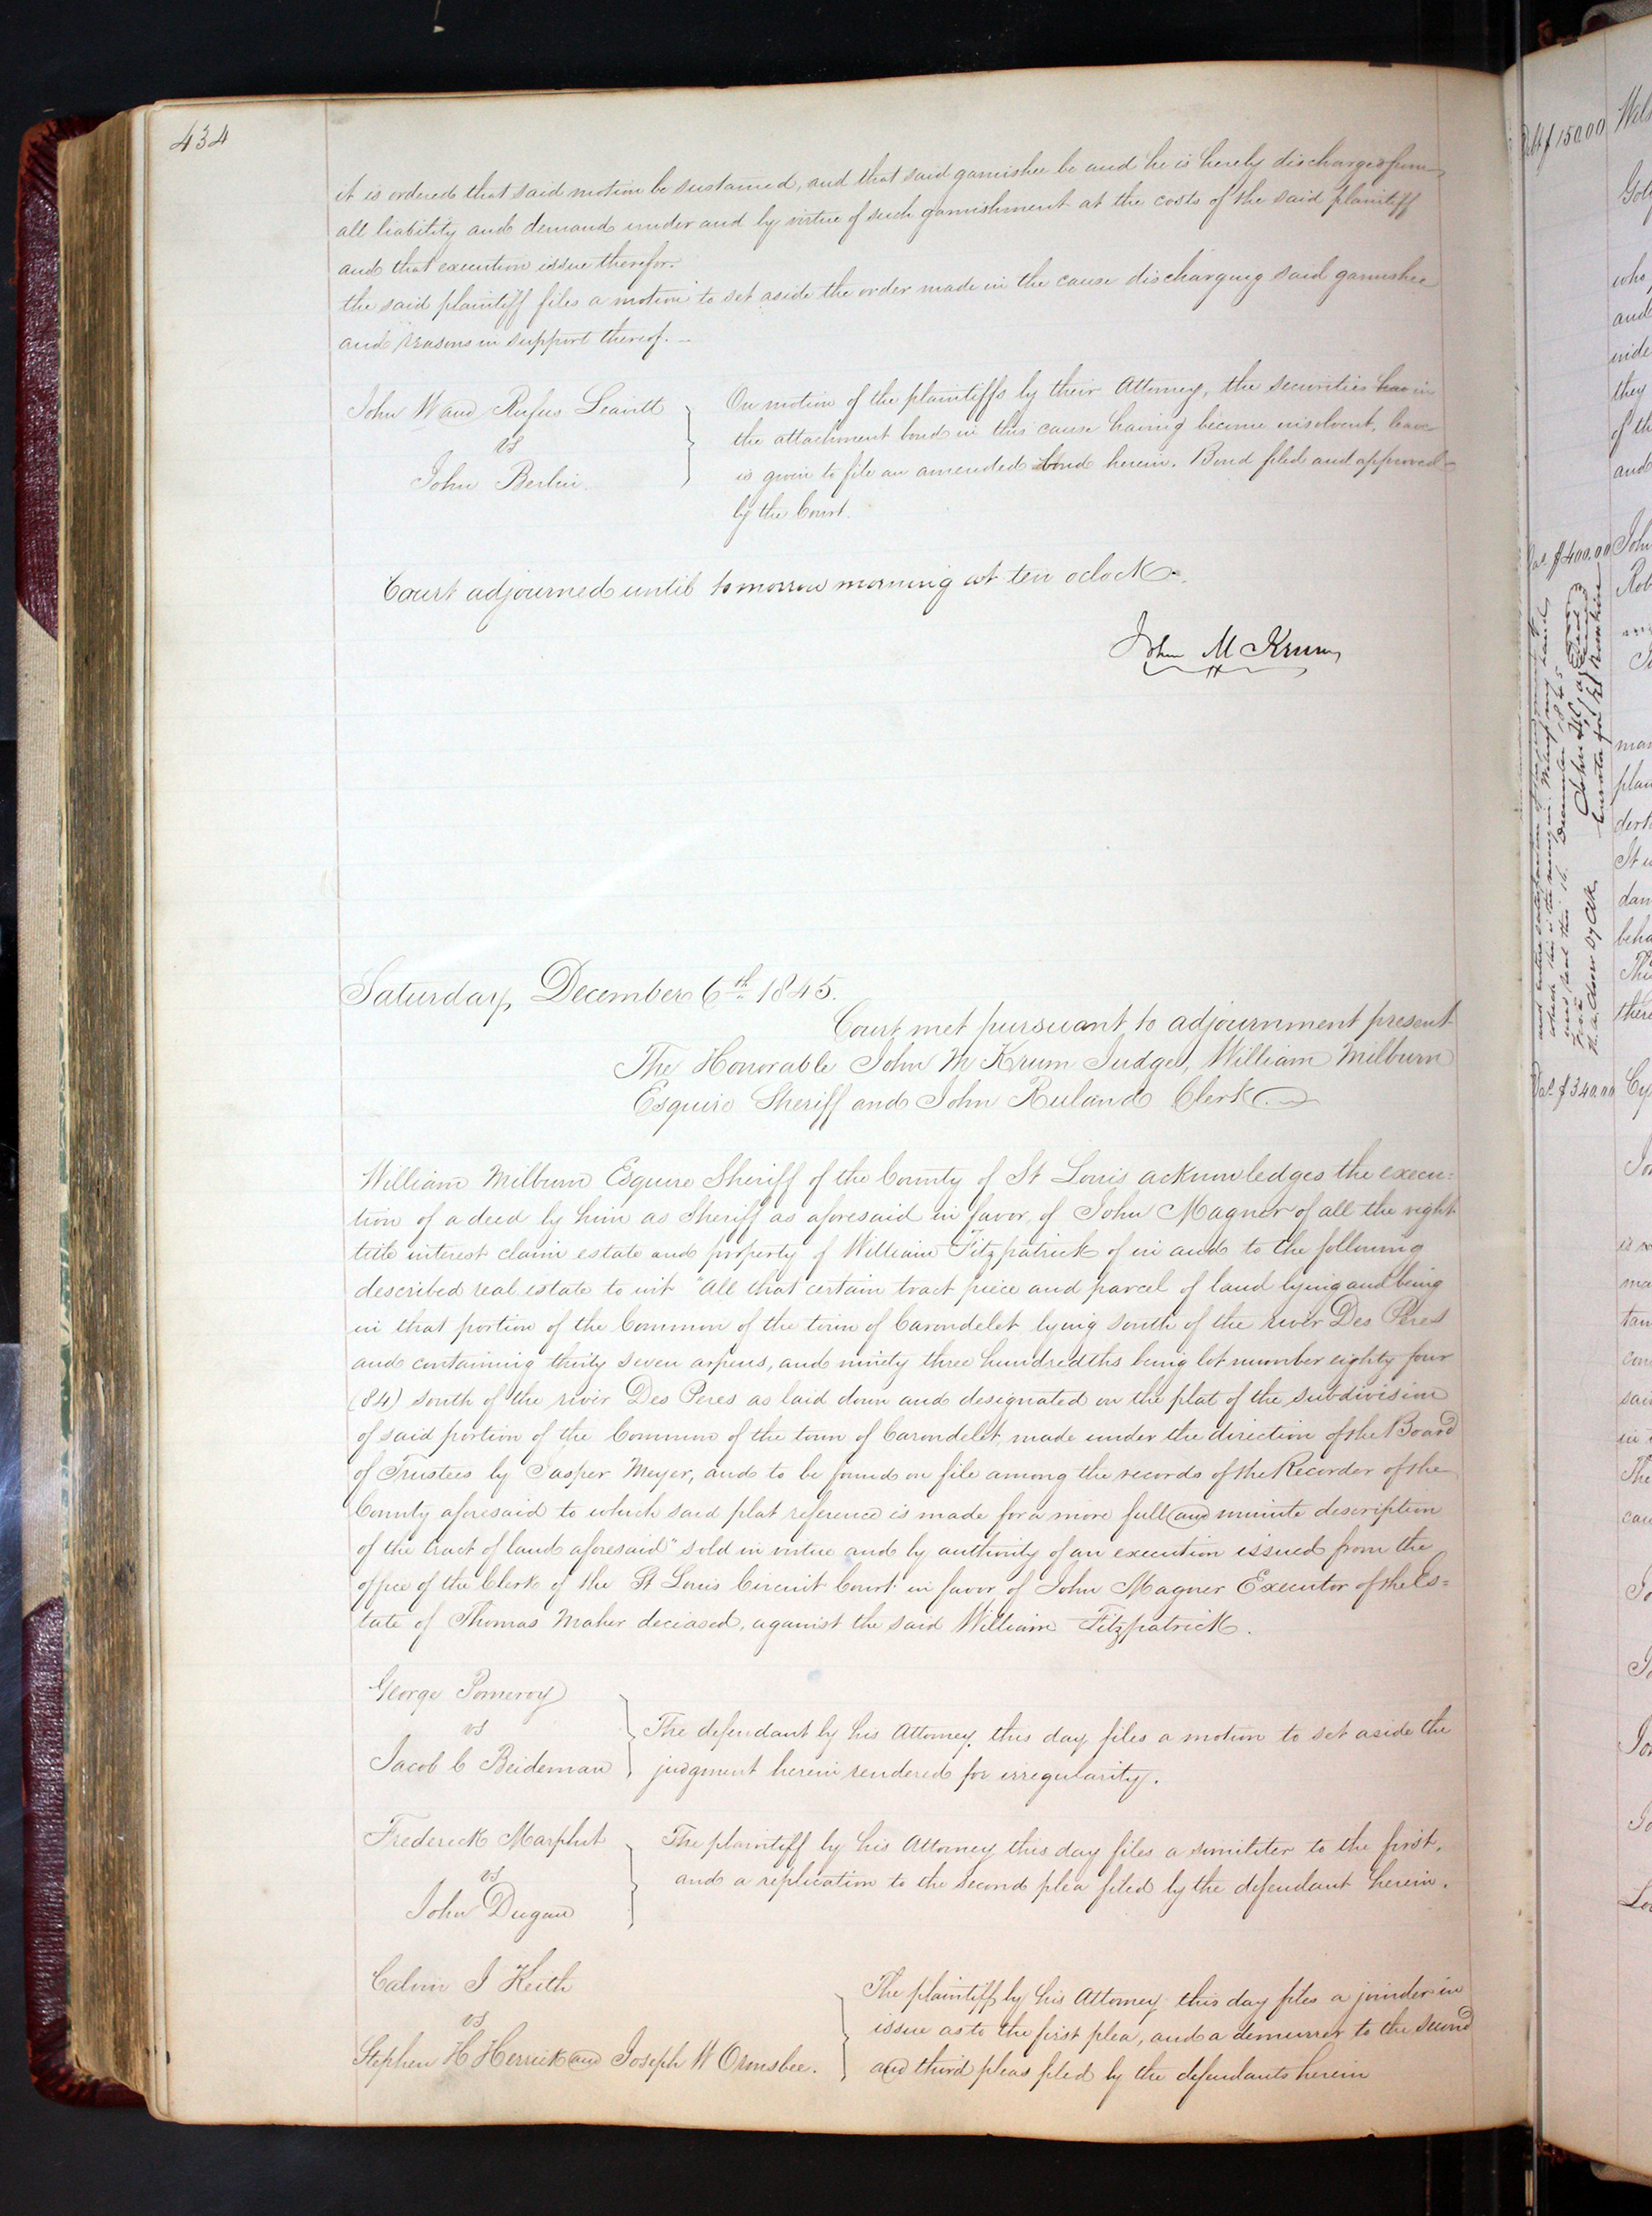 434
it is ordered that said motion be sustained, and that said garnishee be and he is hereby discharged from
all liability and demand under and by virtue of such garnishment at the costs of the said plaintiff
and that execution issue therefor.
the said plaintiff files a motion to set aside the order made in the cause discharging said garnishee
and reasons in support thereof.
John W and Rufus Leavitt
vs
John Berlin.
On motion of the plaintiffs by their Attorney, the securities in
the attachment bond in this cause having become insolvent, leave
is given to file an amended bond herein. Bond filed and approved
by the Court.
Court adjourned until tomorrow morning at ten oclock.
John M Krum
Saturday, December 6th 1845.
Court met pursuant to adjournment present
The Honorable John M Krum Judge, William Milburn
Esquire Sheriff and John Ruland Clerk.
William Milburn Esquire Sheriff of the County of St Louis acknowledges the execu=
tion of a deed by him as Sheriff as aforesaid in favor of John Magner of all the right
title interest claim estate and property of William Fitzpatrick of in and to the following
described real estate to wit "All that certain tract piece and parcel of land lying and being
in that portion of the Common of the town of Carondelet lying south of the river Des Peres
and containing thirty seven arpens, and ninety three hundredths being lot number eighty four
(84) south of the river Des Peres as laid down and designated on the plat of the subdivision
of said portion of the Common of the town of Carondelet, made under the direction of the Board
of Trustees by Jasper Meyer, and to be found on file among the records of the Recorder of the
County aforesaid to which said plat reference is made for a more full and minute description
of the tract of land aforesaid" sold in virtue and by authority of an execution issued from the
office of the Clerk of the St Louis Circuit Court in favor of John Magner Executor of the Es=
tate of Thomas Maher deceased, against the said William Fitzpatrick.
George Pomeroy
vs
Jacob C Beideman
The defendant by his Attorney this day files a motion to set aside the
judgment herein rendered for irregularity.
Frederick Marphut
vs
John Dugan
The plaintiff by his Attorney this day files a similiter to the first,
and a replication to the second plea filed by the defendant herein.
Calvin J Keith
vs
Stephen H Herrick and Joseph W Ormsbee.
The plaintiff by his Attorney this day files a joinder in
issue as to the first plea, and a demurrer to the second
and third pleas filed by the defendants herein